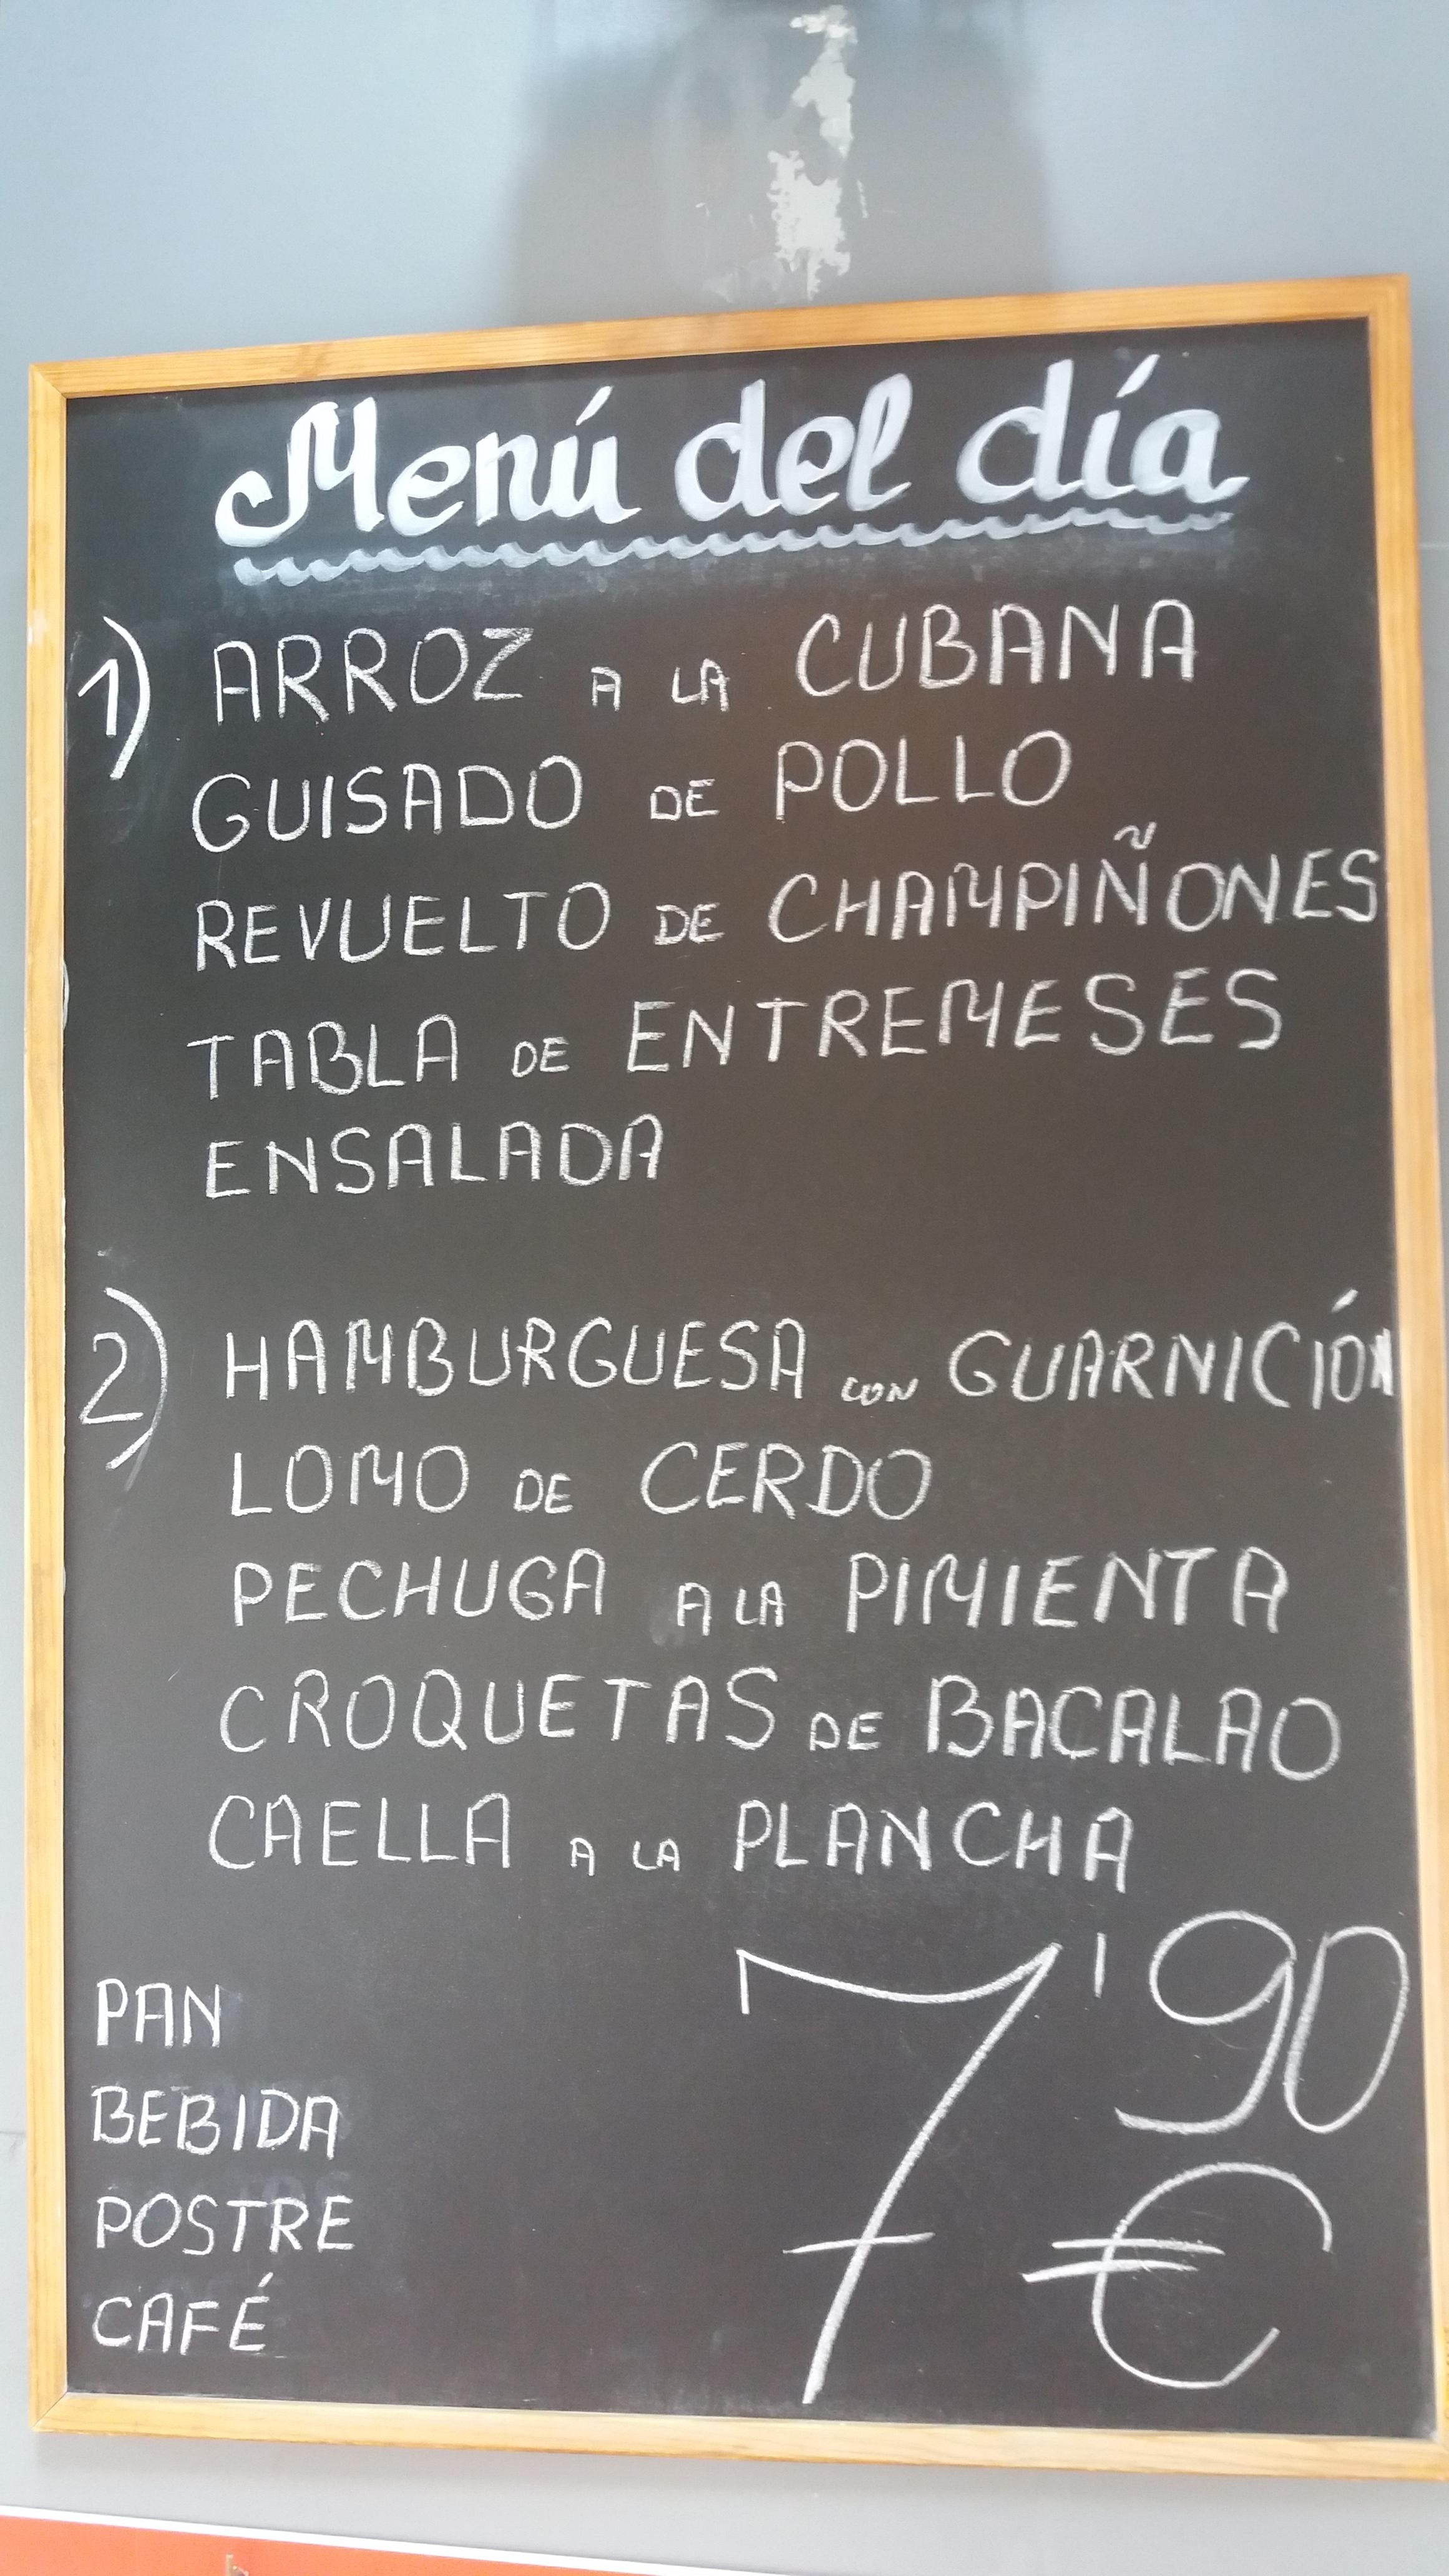 Menú del día
1) ARROZ A LA CUBANA
GUISADO DE POLLO
REVUELTO DE CHAMPIÑONES
TABLA DE ENTREMESES
ENSALADA
2) HAMBURGUESA CON GUARNICIÓN
LOMO DE CERDO
PECHUGA A LA PIMIENTA
CROQUETAS DE BACALAO
CAELLA A LA PLANCHA
PAN
BEBIDA
POSTRE
CAFÉ
7'90
€